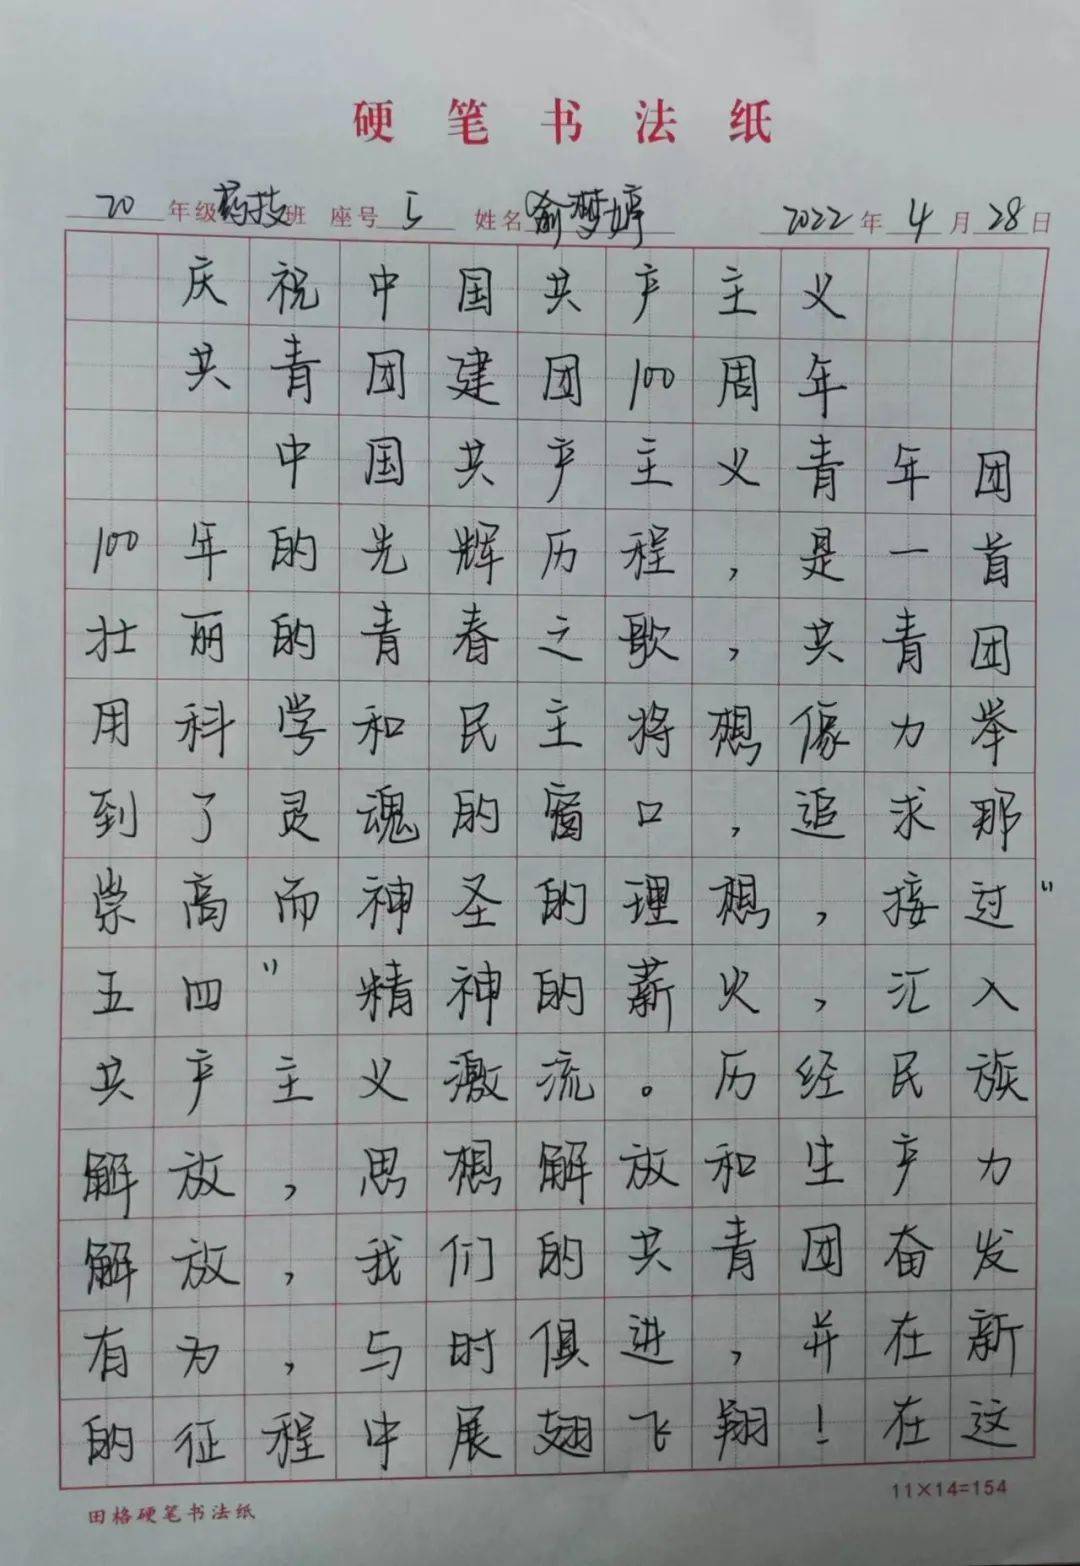 硬笔书法纸
20年级药技班 座号5 姓名俞梦婷 2022年4月28日
庆祝中国共产主义
共青团建团100周年
中国共产主义青年团
100年的光辉历程，是一首
壮丽的青春之歌，共青团
用科学和民主将想像力举
到了灵魂的窗口，追求那
崇高而神圣的理想，接过“
五四”精神的薪火，汇入
共产主义激流。历经民族
解放，思想解放和生产力
解放，我们的共青团奋发
有为，与时俱进，并在新
的征程中展翅飞翔！在这
田格硬笔书法纸
11×14=154